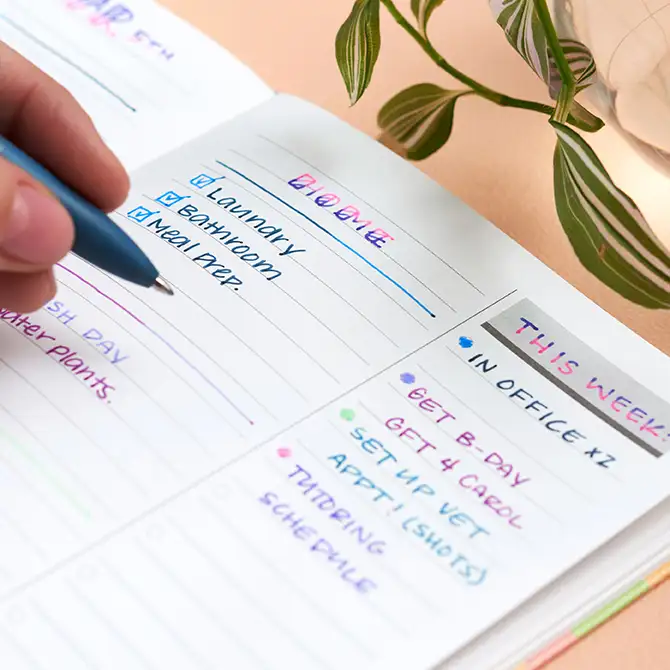 5TH
HOME
☑ Laundry
☑ Bathroom
☑ Meal Prep.
SH DAY
water plants.
THIS WEEK:
IN OFFICE x2
GET B-DAY
GFT 4 CAROL
SET UP VET
APPT! (SHOTS)
TUTORING
SCHEDULE